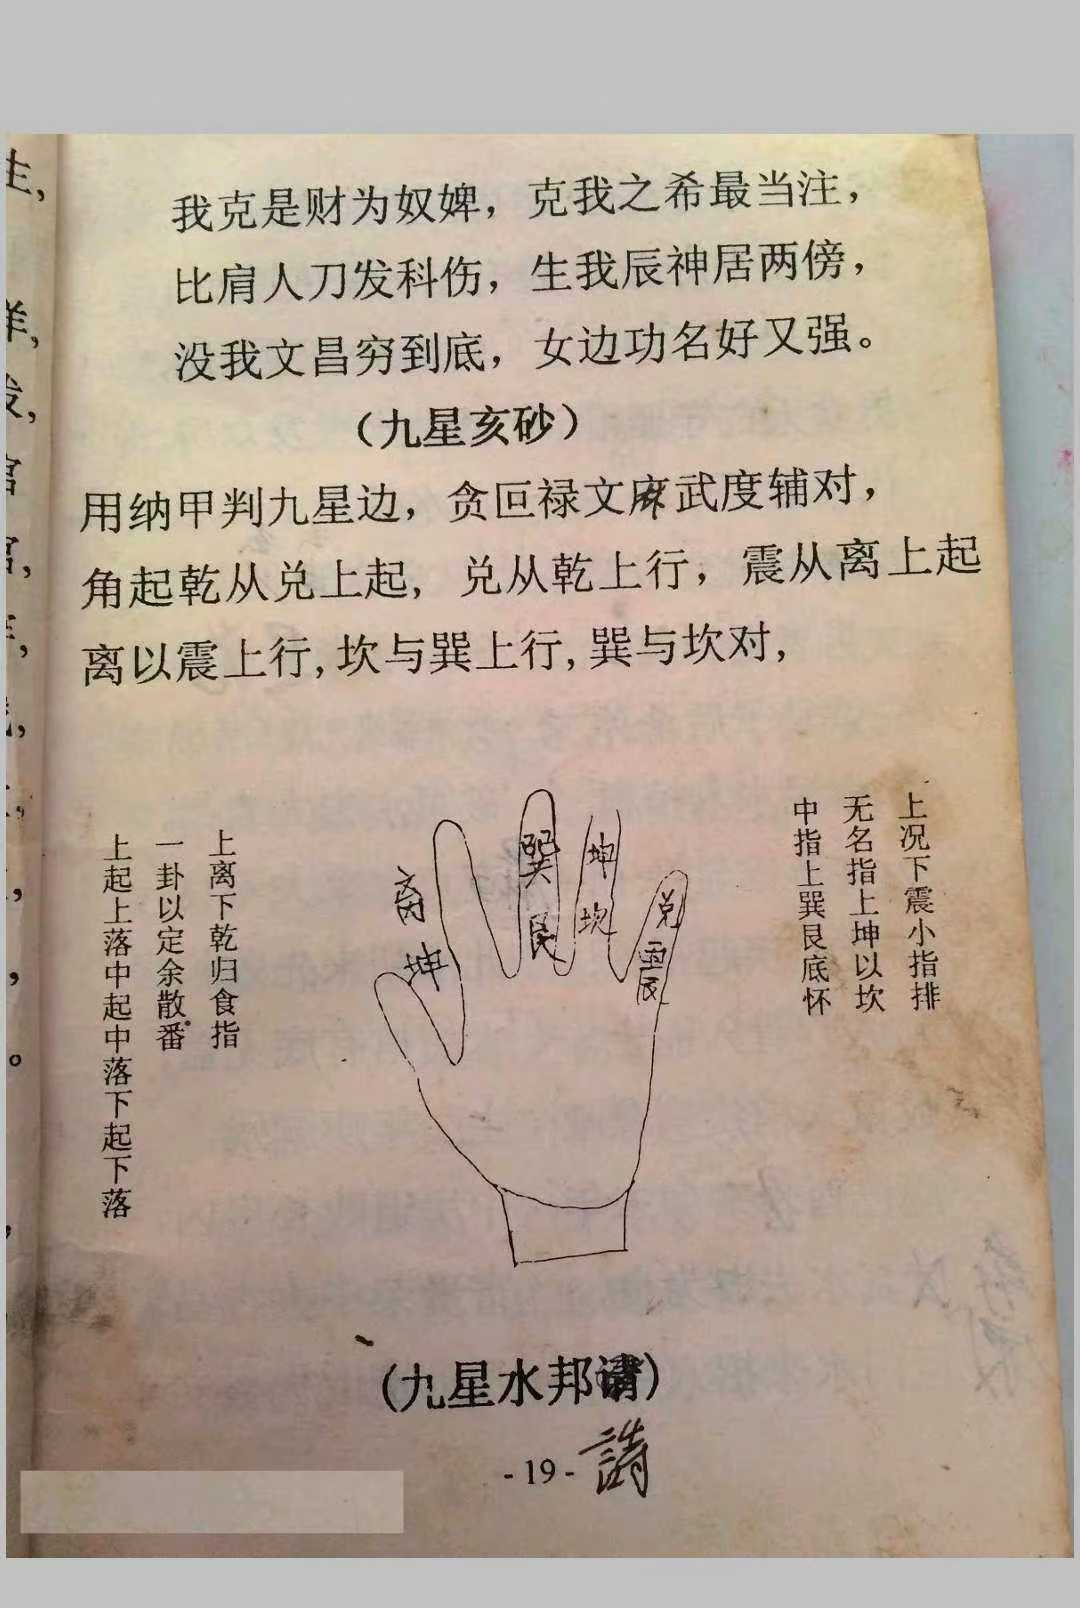 我克是财为奴婢，克我之希最当注，
比肩人刀发科伤，生我辰神居两傍，
没我文昌穷到底，女边功名好又强。
（九星亥砂）
用纳甲判九星边，贪叵禄文麻武度辅对，
角起乾从兑上起，兑从乾上行，震从离上起
离以震上行，坎与巽上行，巽与坎对，
上况下震小指排
无名指上坤以坎
中指上巽艮底怀
上离下乾归食指
一卦以定余散番
上起上落中起中落下起下落
离
坤
巽
艮
坤
坎
兑
震
（九星水邦请）
詩
- 19 -